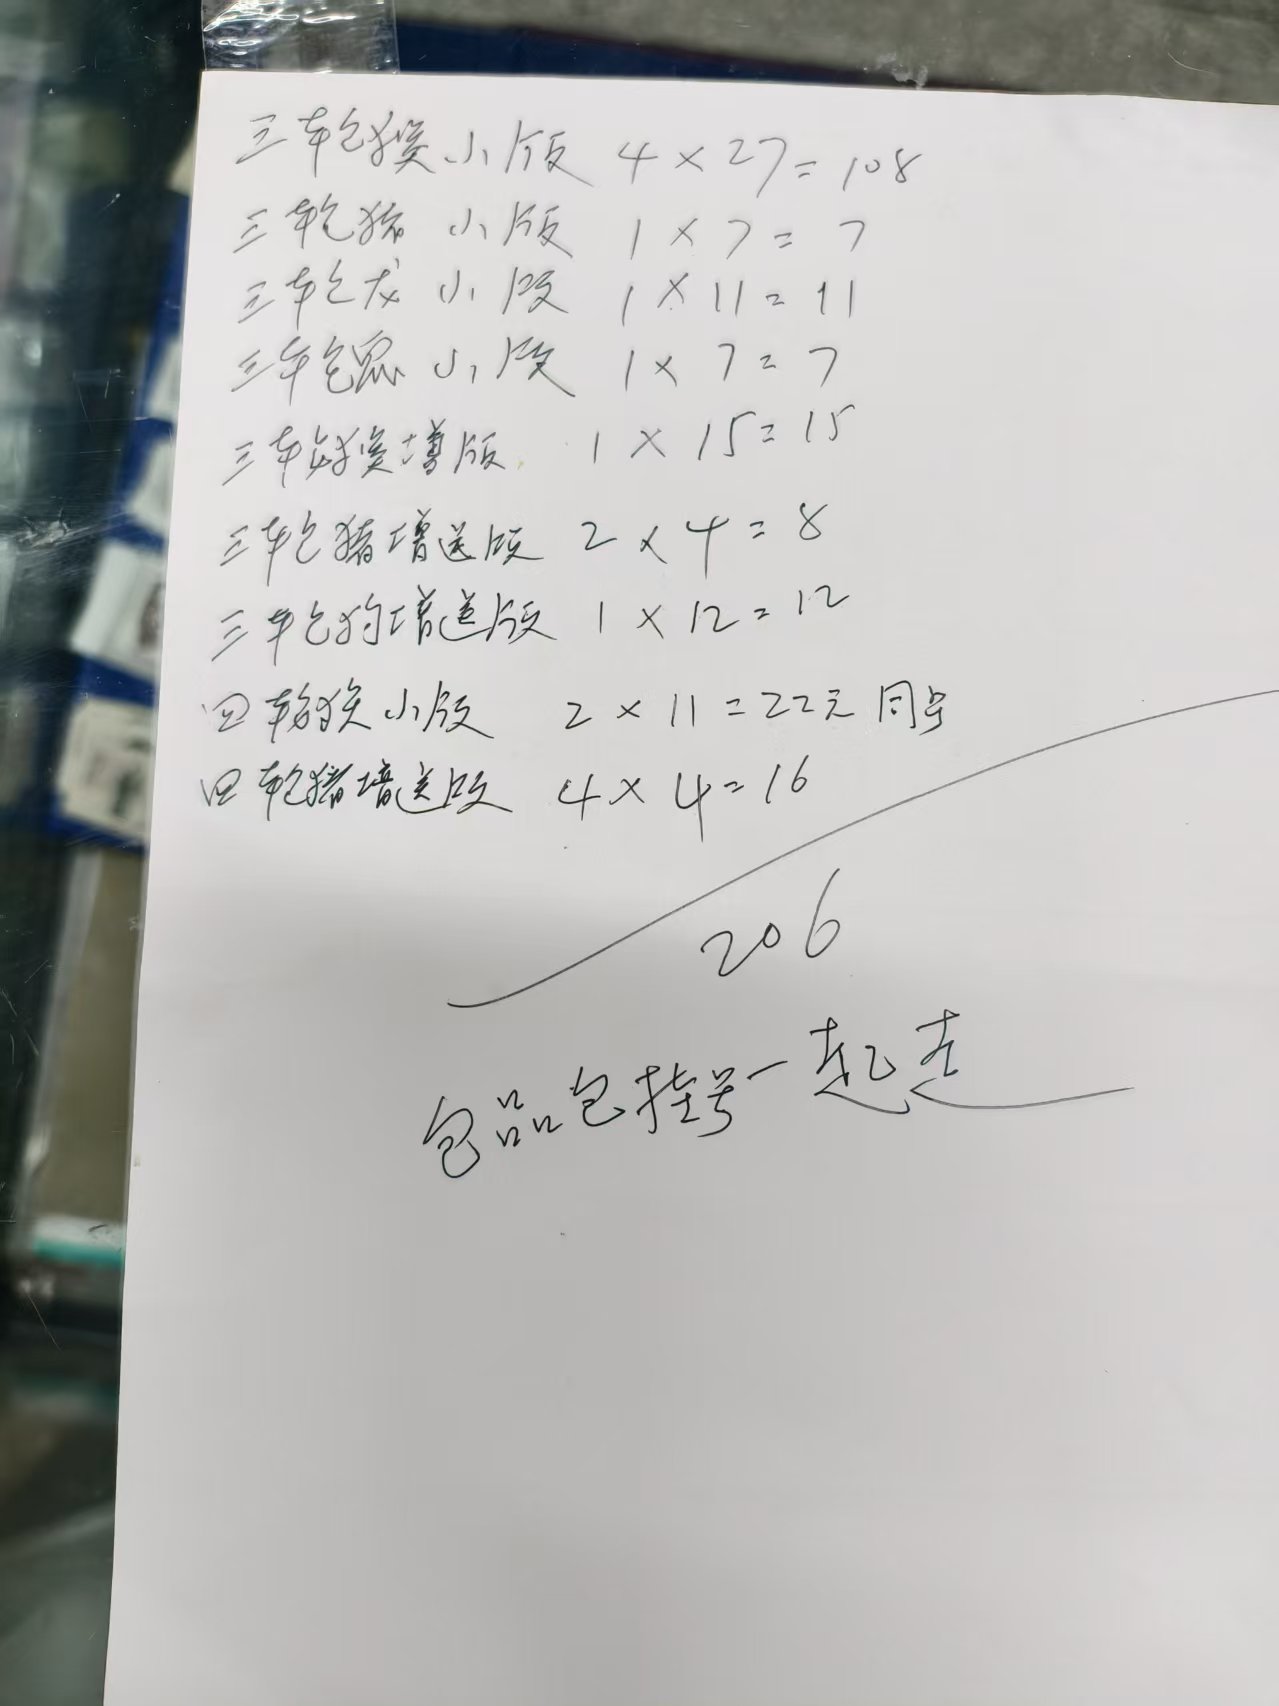 三轮猴小版 4×27=108
三轮猪 小版 1×7=7
三轮龙 小版 1×11=11
三轮鼠 小版 1×7=7
三轮猴增版 1×15=15
三轮猪增送版 2×4=8
三轮狗增送版 1×12=12
四轮猴小版 2×11=22元 同号
四轮猪增送版 4×4=16
206
包品包挂号一起走